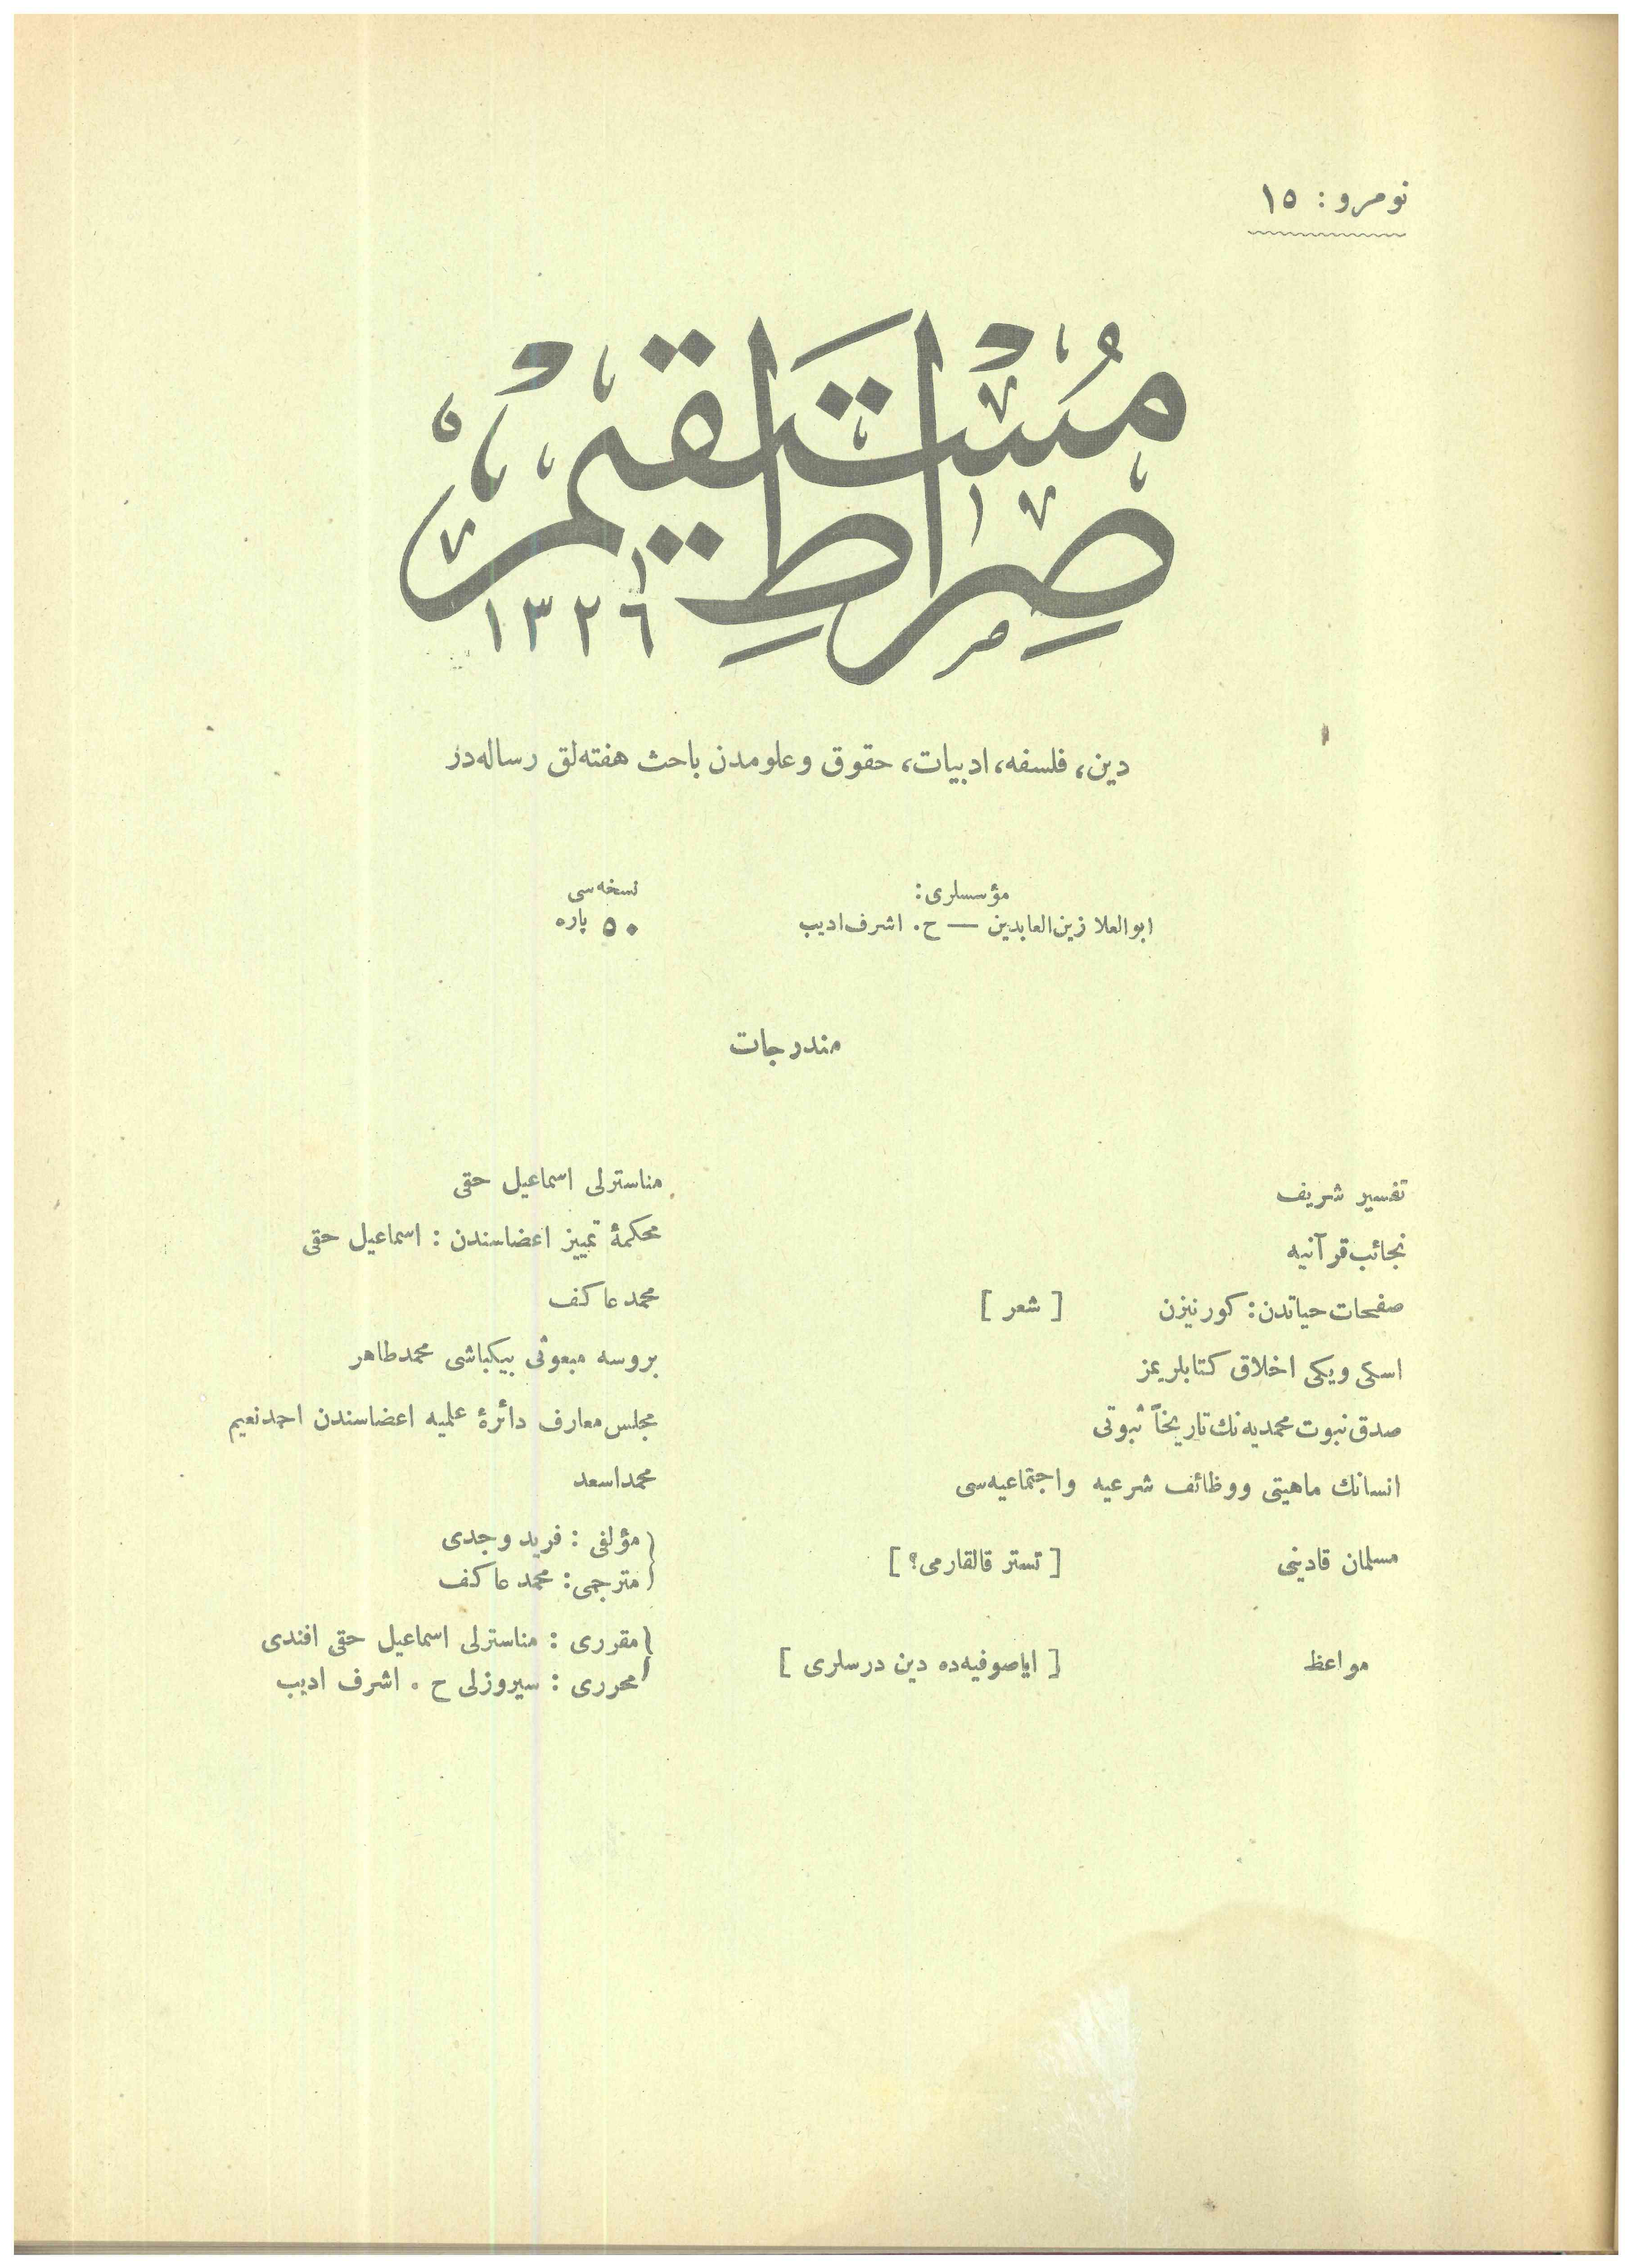 نومرو : ١٥
صِرَاطِ مُسْتَقِيم
١٣٢٦
دين، فلسفه، ادبيات، حقوق وعلومدن باحث هفته‌لق رساله‌در
مؤسسلری: نسخه‌سی
ابوالعلا زين‌العابدين — ح. اشرف‌اديب ٥٠ پاره
مندرجات
تفسير شريف مناسترلی اسماعيل حقی
نجائب‌قرآنيه محكمۀ تمييز اعضاسندن : اسماعيل حقی
صفحات‌حياتدن: كورنيزن [ شعر ] محمدعاكف
اسكی ويكی اخلاق كتابلريمز بروسه مبعوثی بيكباشی محمدطاهر
صدق‌نبوت‌محمديه‌نك‌تاريخاً ثبوتی مجلس‌معارف دائرۀ علميه اعضاسندن احمدنعيم
انسانك ماهيتی ووظائف شرعيه واجتماعيه‌سی محمداسعد
مسلمان قادينی [ تستر قالقارمی؟ ] مؤلفی : فريد وجدی
مترجمی: محمد عاكف
مواعظ [ اياصوفيه‌ده دين درسلری ] مقرری : مناسترلی اسماعيل حقی افندی
محرری : سيروزلی ح . اشرف اديب